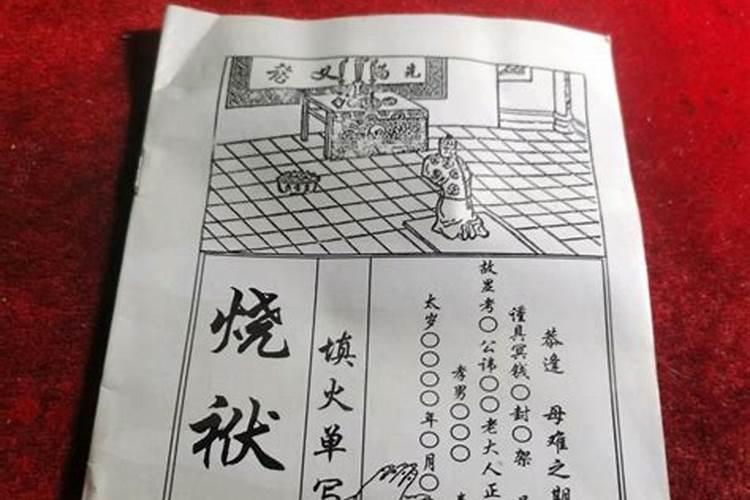 恭逢 母难之期
谨具冥钱〇封〇架
故显考〇公讳〇〇老大人正
孝男〇〇〇
太岁〇〇〇〇年〇月〇
填火单写
烧袱